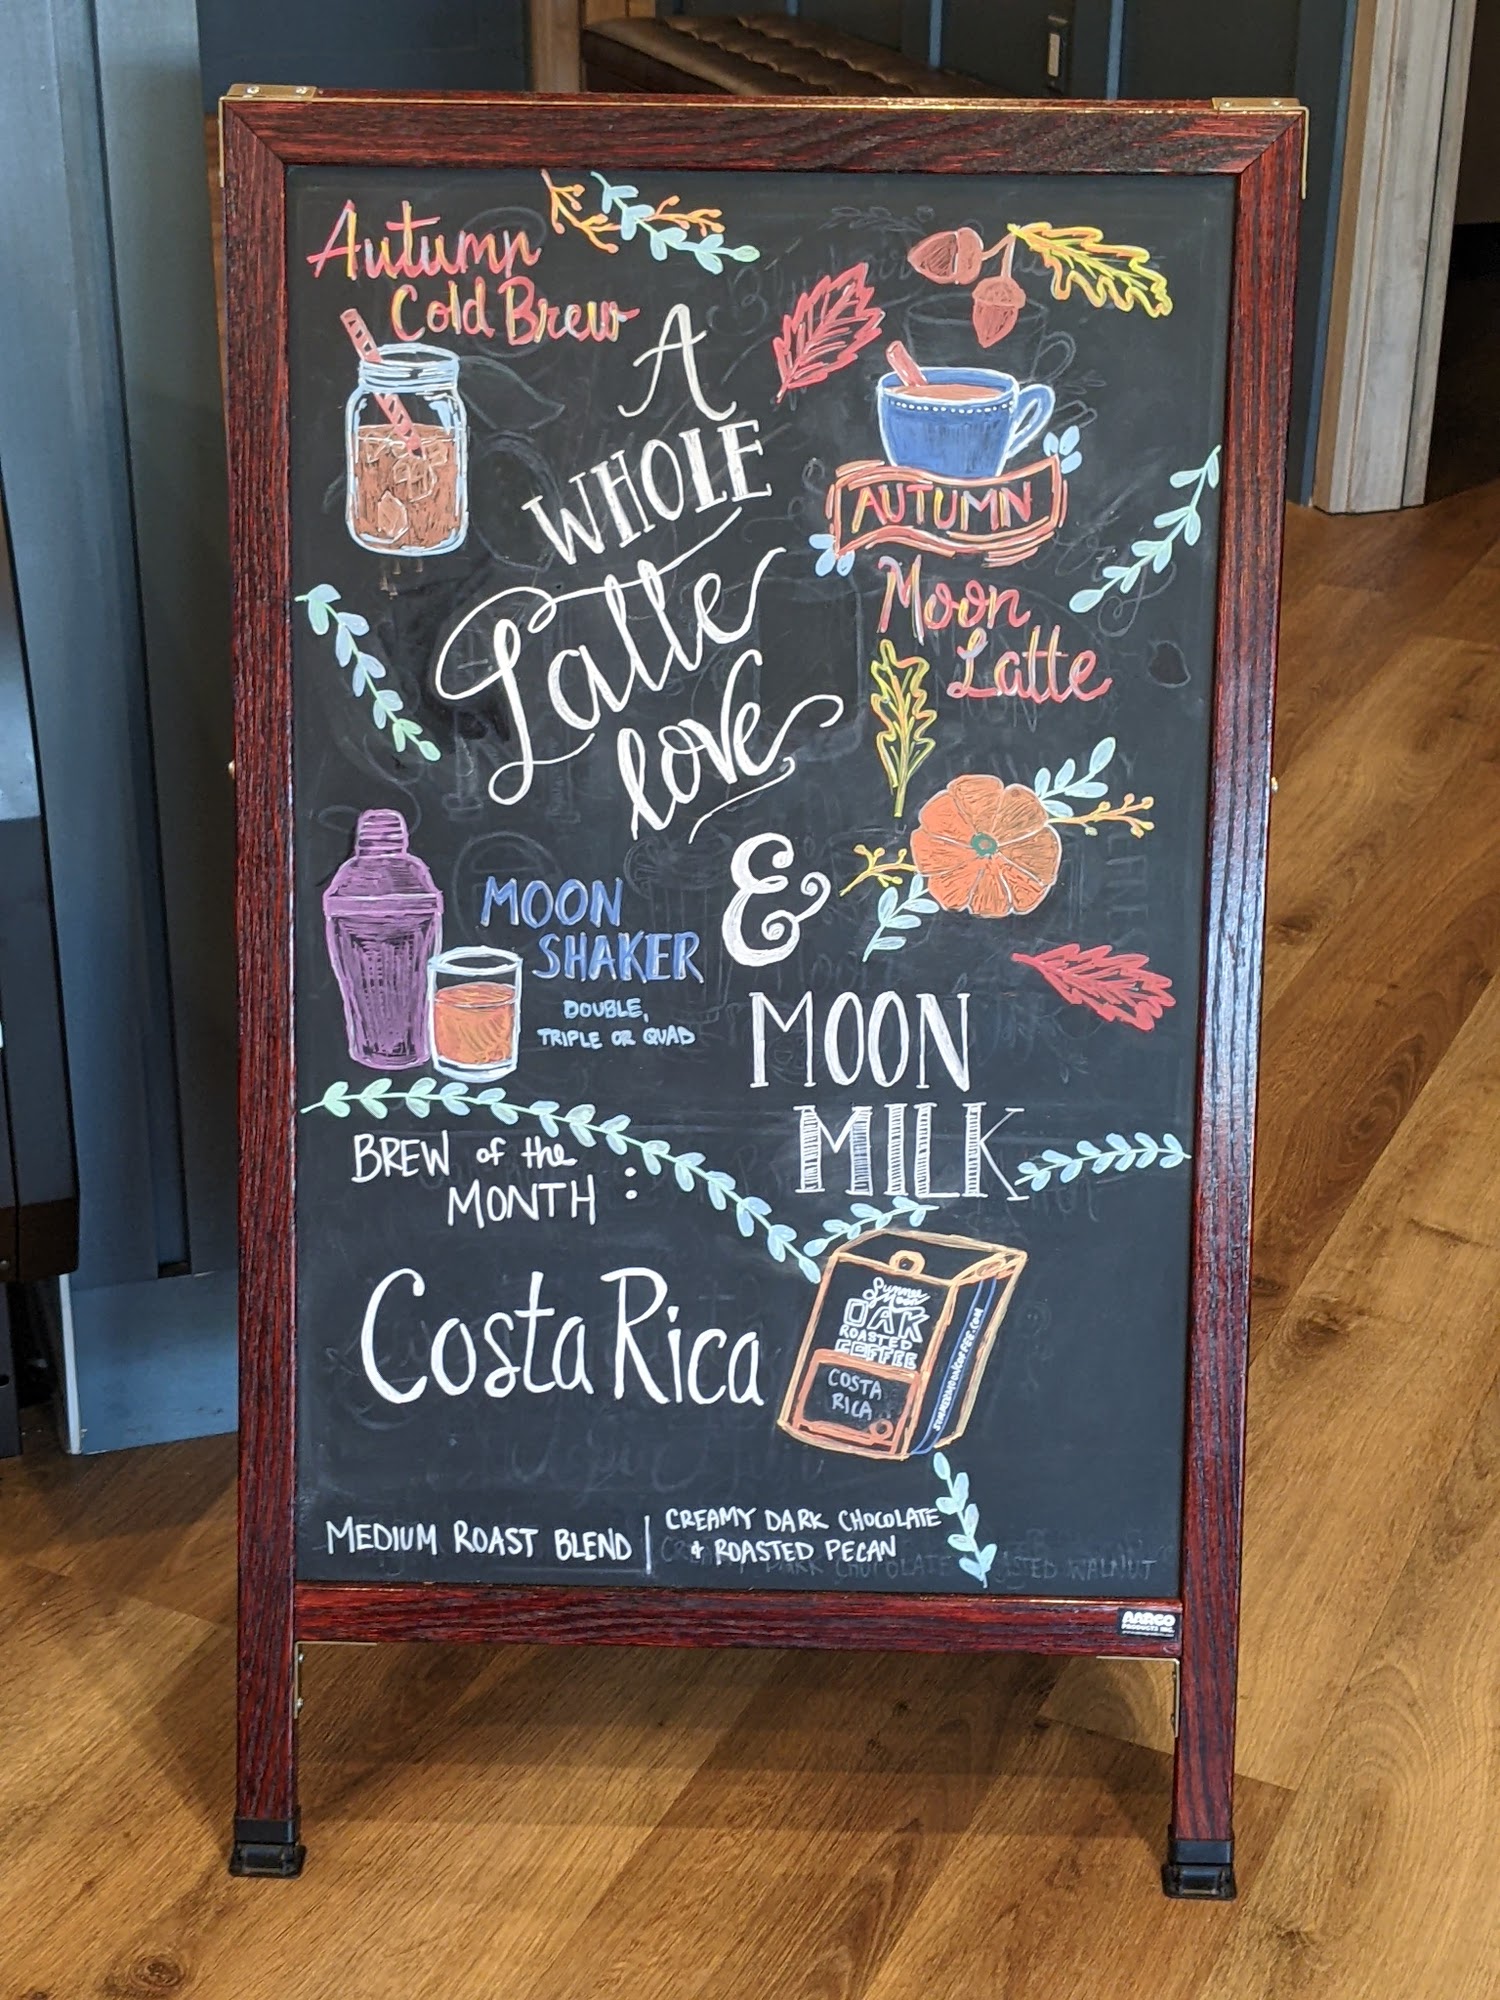 Autumn
Cold Brew
A
WHOLE
Latte
love
&
MOON
MILK
AUTUMN
Moon
Latte
MOON
SHAKER
DOUBLE,
TRIPLE OR QUAD
BREW of the
MONTH :
Costa Rica
Summer
Moon
OAK
ROASTED
COFFEE
COSTA
RICA
SUMMERMOONCOFFEE.COM
MEDIUM ROAST BLEND
CREAMY DARK CHOCOLATE
& ROASTED PECAN
AARCO
PRODUCTS INC.